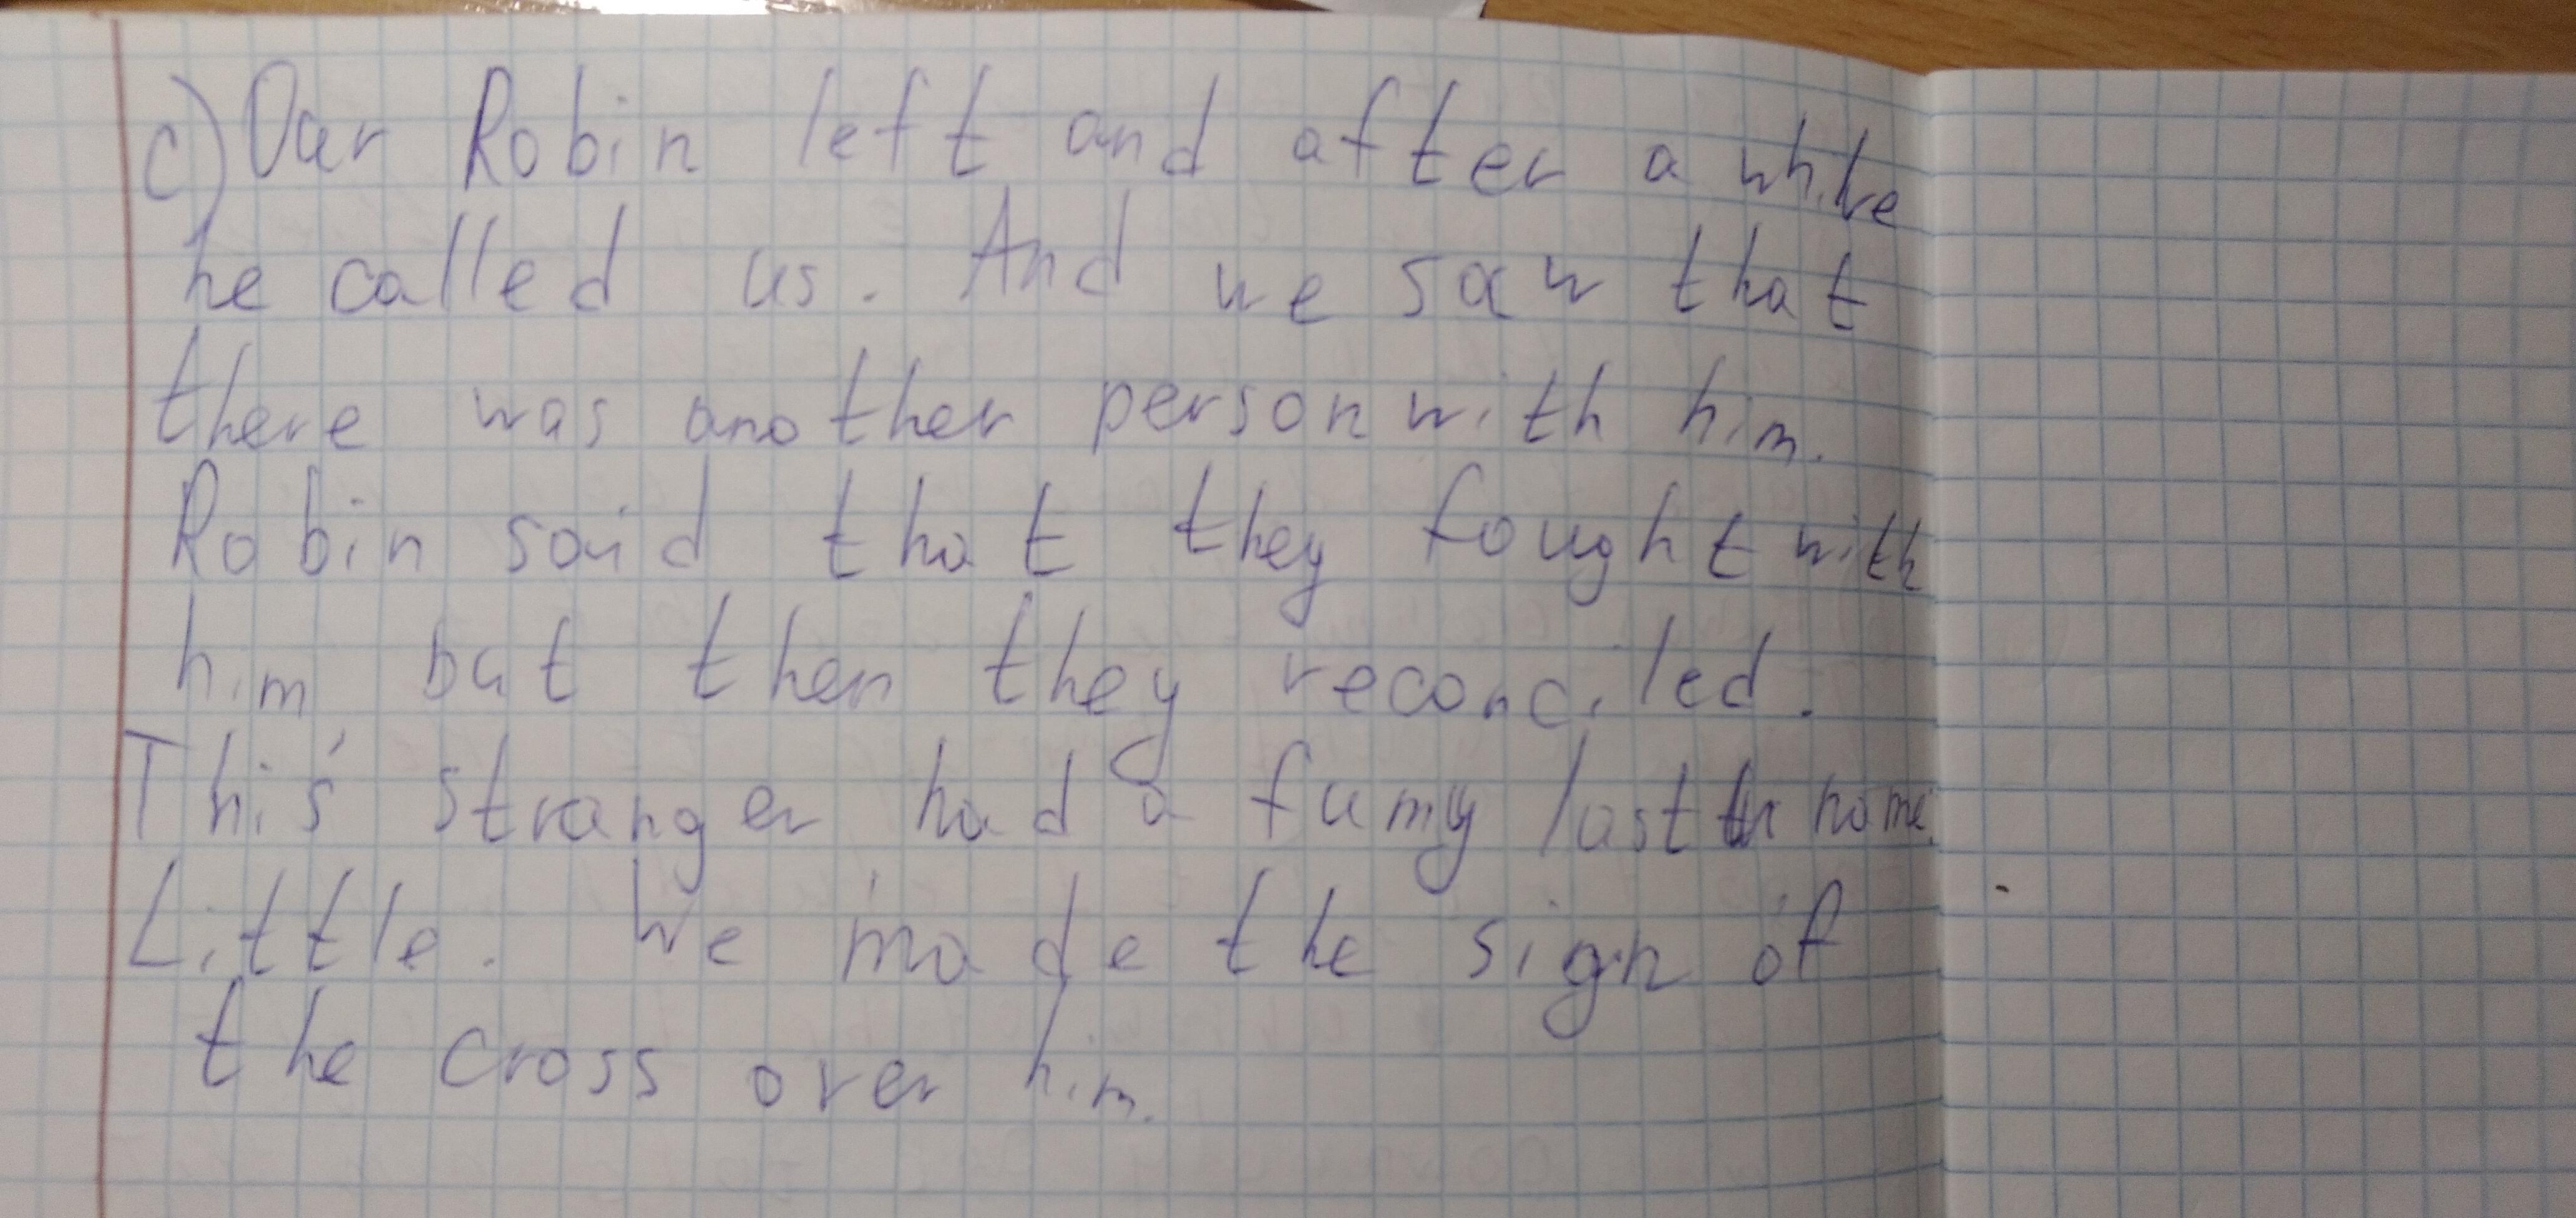 c) Our Robin left and after a while
he called us. And we saw that
there was another person with him.
Robin said that they fought with
him but then they reconciled.
This stranger had a funny last name:
Little. We made the sign of
the cross over him.